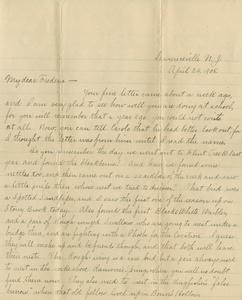 Lawrenceville N.J.
April 24, 1908
My dear Frederic —
Your fine letter came about a week ago,
and I am very glad to see how well you are doing at school,
for you will remember that a year ago you could not write
at all. Now, you can tell that he had better look out for
I thought the letter was from him until I saw the name
As you remember the day we went out to Flint Creek last
year and found the Blackburn. And how we found some
nettles too, and then came out on a sandbar the creek and saw
a little snipe there whom we tried to This bird was
a Spotted Sandpiper, and I saw the first one of the season up on
Stony Brook today. Also found the first Black & White Warbler
and a pair of Rough winged Swallows who are going to nest under a
bridge there, and are fighting with a Phoebe for the location. I guess
they will make up and be friends though, and that both will have
their nests. The Rough wing is a rare bird but a pair always used
to nest in the when you will no doubt
find them now. They also used to nest in the
when that old fellow lived up